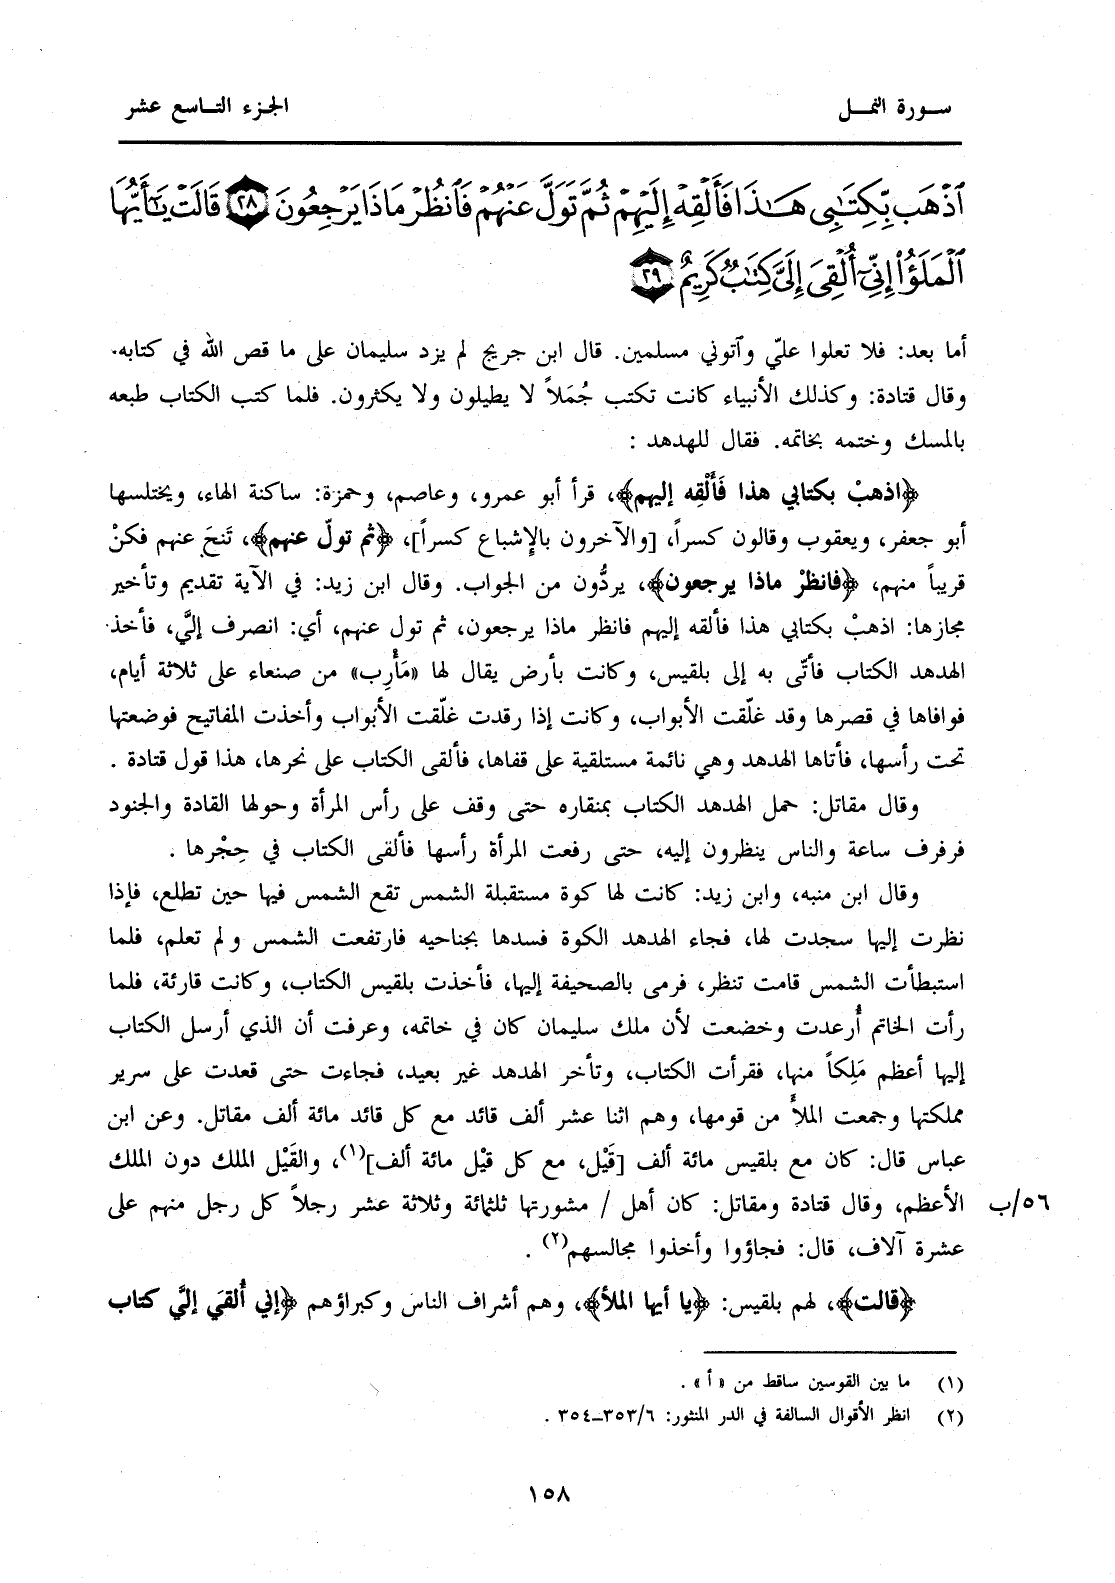 سورة النمل
الجزء التاسع عشر
ٱذْهَب بِّكِتَٰبِي هَٰذَا فَأَلْقِهْ إِلَيْهِمْ ثُمَّ تَوَلَّ عَنْهُمْ فَٱنظُرْ مَاذَا يَرْجِعُونَ ٢٨ قَالَتْ يَٰٓأَيُّهَا
ٱلْمَلَؤُا۟ إِنِّيٓ أُلْقِيَ إِلَيَّ كِتَٰبٌ كَرِيمٌ ٢٩
أما بعد: فلا تعلوا عليّ وأتوني مسلمين. قال ابن جريج لم يزد سليمان على ما قص الله في كتابه.
وقال قتادة: وكذلك الأنبياء كانت تكتب جُمَلاً لا يطيلون ولا يكثرون. فلما كتب الكتاب طبعه
بالمسك وختمه بخاتمه. فقال للهدهد :
﴿اذهبْ بكتابي هذا فَأَلْقِه إليهم﴾، قرأ أبو عمرو، وعاصم، وحمزة: ساكنة الهاء، ويختلسها
أبو جعفر، ويعقوب وقالون كسراً، [والآخرون بالإشباع كسراً]، ﴿ثم تولّ عنهم﴾، تَنحَ عنهم فكنْ
قريباً منهم، ﴿فانظرْ ماذا يرجعون﴾، يردُّون من الجواب. وقال ابن زيد: في الآية تقديم وتأخير
مجازها: اذهبْ بكتابي هذا فألقه إليهم فانظر ماذا يرجعون، ثم تول عنهم، أي: انصرف إليَّ، فأخذ
الهدهد الكتاب فأتّى به إلى بلقيس، وكانت بأرض يقال لها «مَأْرِب» من صنعاء على ثلاثة أيام،
فوافاها في قصرها وقد غلّقت الأبواب، وكانت إذا رقدت غلّقت الأبواب وأخذت المفاتيح فوضعتها
تحت رأسها، فأتاها الهدهد وهي نائمة مستلقية على قفاها، فألقى الكتاب على نحرها، هذا قول قتادة .
وقال مقاتل: حمل الهدهد الكتاب بمنقاره حتى وقف على رأس المرأة وحولها القادة والجنود
فرفرف ساعة والناس ينظرون إليه، حتى رفعت المرأة رأسها فألقى الكتاب في حِجْرها .
وقال ابن منبه، وابن زيد: كانت لها كوة مستقبلة الشمس تقع الشمس فيها حين تطلع، فإذا
نظرت إليها سجدت لها، فجاء الهدهد الكوة فسدها بجناحيه فارتفعت الشمس ولم تعلم، فلما
استبطأت الشمس قامت تنظر، فرمى بالصحيفة إليها، فأخذت بلقيس الكتاب، وكانت قارئة، فلما
رأت الخاتم أُرعدت وخضعت لأن ملك سليمان كان في خاتمه، وعرفت أن الذي أرسل الكتاب
إليها أعظم مَلِكاً منها، فقرأت الكتاب، وتأخر الهدهد غير بعيد، فجاءت حتى قعدت على سرير
مملكتها وجمعت الملأَ من قومها، وهم اثنا عشر ألف قائد مع كل قائد مائة ألف مقاتل. وعن ابن
عباس قال: كان مع بلقيس مائة ألف [قَيْل، مع كل قيْل مائة ألف](١)، والقَيْل الملك دون الملك
الأعظم، وقال قتادة ومقاتل: كان أهل / مشورتها ثلثمائة وثلاثة عشر رجلاً كل رجل منهم على
٥٦/ب
عشرة آلاف، قال: فجاؤوا وأخذوا مجالسهم(٢) .
﴿قالت﴾، لهم بلقيس: ﴿يا أيها الملأ﴾، وهم أشراف الناس وكبراؤهم ﴿إني أُلقيَ إليَّ كتاب
(١) ما بين القوسين ساقط من «أ» .
(٢) انظر الأقوال السالفة في الدر المنثور: ٣٥٣/٦ـ٣٥٤ .
١٥٨